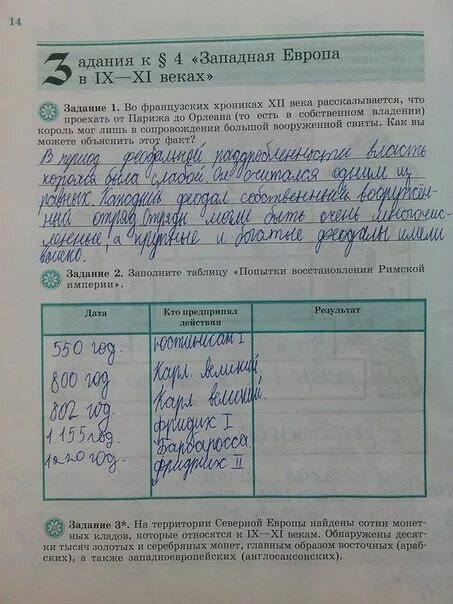 14
Задания к § 4 «Западная Европа
в IX—XI веках»
Задание 1. Во французских хрониках XII века рассказывается, что
проехать от Парижа до Орлеана (то есть в собственном владении)
король мог лишь в сопровождении большой вооруженной свиты. Как вы
можете объяснить этот факт?
В период феодальной раздробленности власть
короля была слабой. Он считался одним из
равных. Каждый феодал собственный вооружён-
ный отряд. Отряды могли быть очень многочис-
ленные, а крупные и богатые феодалы имели
войско.
Задание 2. Заполните таблицу «Попытки восстановления Римской
империи».
Дата
Кто предпринял
действия
Результат
550 год. Юстиниан I
800 год Карл великий
802 год. Карл великий.
1155 год. Фридих I
Барбаросса
1220 год. Фридрих II
Задание 3*. На территории Северной Европы найдены сотни монет-
ных кладов, которые относятся к IX—XI векам. Обнаружены десят-
ки тысяч золотых и серебряных монет, главным образом восточных (араб-
ских), а также западноевропейских (англосаксонских).